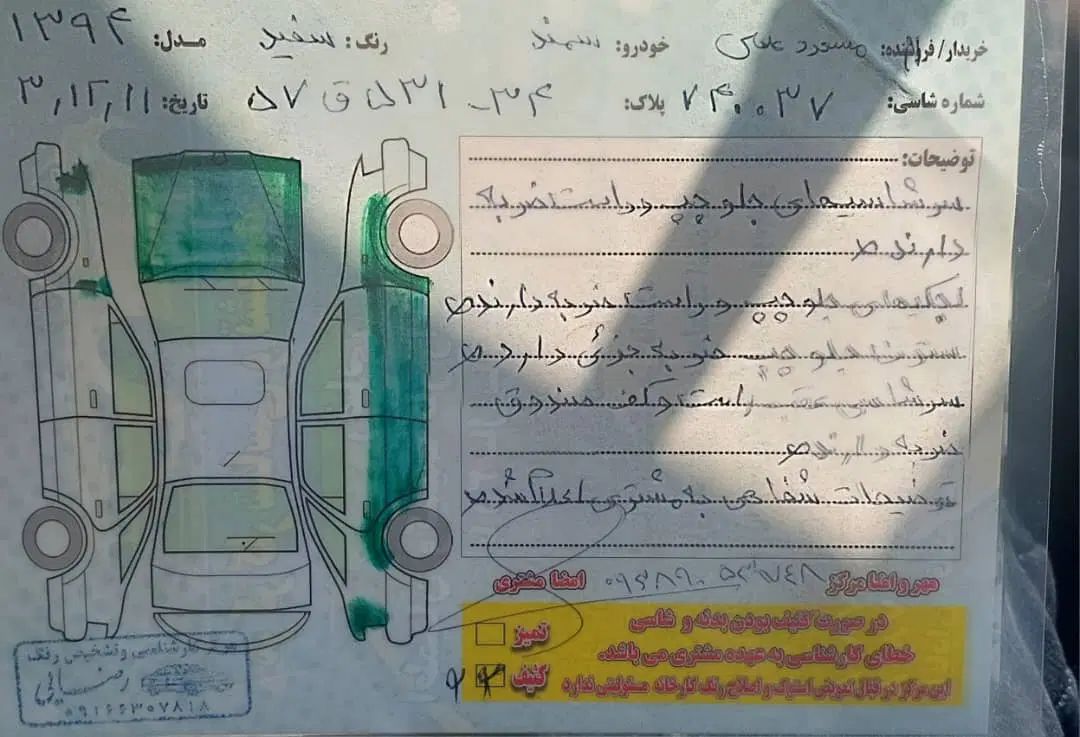 خریدار/ فروشنده: مسعود علی خودرو: سمند رنگ: سفید مـدل: ۱۳۹۴
شماره شاسی: ۷۴۰۰۳۷ پلاک: ۳۴-۵۳۱ ق ۵۷ تاریخ: ۳,۱۲,۱۱
توضیحات:
سرشاسیهای جلو چپ و راست ضربه
دارند
لچکیهای جلو چپ و راست ضربه دارند
ستون جلو چپ ضربه جزئی دارد
سرشاسی عقب راست و کف صندوق
ضربه دارند
توضیحات شفاهی به مشتری اعلام شد
مهر و امضا مرکز امضا مشتری
در صورت کثیف بودن بدنه و شاسی
خطای کارشناسی به عهده مشتری می باشد.
این مرکز در قبال تعویض استوک و اصلاح رنگ کارخانه مسئولیتی ندارد
تمیز
کثیف
کارشناسی و تشخیص رنگ
رضایی
۰۹۱۶۶۳۰۷۸۱۸